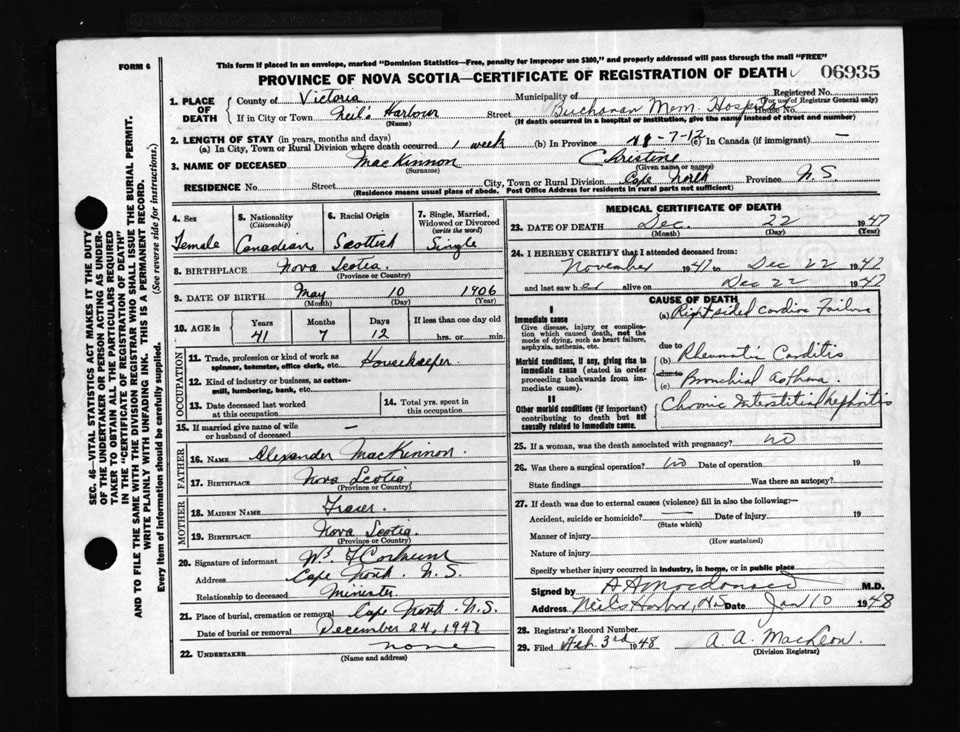 FORM 6
This form if placed in an envelope, marked "Dominion Statistics—Free, penalty for improper use $300," and properly addressed will pass through the mail "FREE"
PROVINCE OF NOVA SCOTIA—CERTIFICATE OF REGISTRATION OF DEATH 06935
1. PLACE OF DEATH County of Victoria Municipality of Registered No.
(For use of Registrar General only)
If in City or Town Neil's Harbour Street Buchanan Mem. Hospital House No.
(Name) (If death occurred in a hospital or institution, give the name instead of street and number)
2. LENGTH OF STAY (in years, months and days)
(a) In City, Town or Rural Division where death occurred 1 week (b) In Province 41-7-12 (c) In Canada (if immigrant) —
3. NAME OF DECEASED MacKinnon Christine
(Surname) (Given name or names)
RESIDENCE No. Street City, Town or Rural Division Cape North Province N.S.
(Residence means usual place of abode. Post Office Address for residents in rural parts not sufficient)
4. Sex Female
5. Nationality (Citizenship) Canadian
6. Racial Origin Scottish
7. Single, Married, Widowed or Divorced (write the word) Single
8. BIRTHPLACE Nova Scotia
(Province or Country)
9. DATE OF BIRTH May 10 1906
(Month) (Day) (Year)
10. AGE in Years Months Days If less than one day old
41 7 12 hrs. or min.
OCCUPATION
11. Trade, profession or kind of work as spinner, teamster, office clerk, etc. Housekeeper.
12. Kind of industry or business, as cotton-mill, lumbering, bank, etc.
13. Date deceased last worked at this occupation
14. Total yrs. spent in this occupation
15. If married give name of wife or husband of deceased —
FATHER
16. NAME Alexander MacKinnon.
17. BIRTHPLACE Nova Scotia
(Province or Country)
MOTHER
18. MAIDEN NAME Fraser.
19. BIRTHPLACE Nova Scotia.
(Province or Country)
20. Signature of informant
Address Cape North. N.S.
Relationship to deceased Minister
21. Place of burial, cremation or removal Cape North. N.S.
Date of burial or removal December 24, 1947
22. UNDERTAKER none
(Name and address)
MEDICAL CERTIFICATE OF DEATH
23. DATE OF DEATH Dec. 22 1947
(Month) (Day) (Year)
24. I HEREBY CERTIFY that I attended deceased from:
November 1947 to Dec 22 1947
and last saw her alive on Dec 22 1947
CAUSE OF DEATH
I
Immediate cause (a) Right sided Cardiac Failure
Give disease, injury or complication which caused death, not the mode of dying, such as heart failure, asphyxia, asthenia, etc.
due to
Morbid conditions, if any, giving rise to immediate cause (stated in order proceeding backwards from immediate cause). (b) Rheumatic Carditis
due to
(c) Bronchial Asthma.
II
Other morbid conditions (if important) contributing to death but not causally related to immediate cause. Chronic Interstitial Nephritis
25. If a woman, was the death associated with pregnancy? NO
26. Was there a surgical operation? NO Date of operation 19
State findings Was there an autopsy?
27. If death was due to external causes (violence) fill in also the following:—
Accident, suicide or homicide? — Date of injury 19
(State which)
Manner of injury
(How sustained)
Nature of injury
Specify whether injury occurred in industry, in home, or in public place
Signed by A A Macdonald M.D.
Address Neils Harbor, NS Date Jan 10 1948
28. Registrar's Record Number
29. Filed Feb. 3rd 1948 A. A. MacLeod.
(Division Registrar)
SEC. 46—VITAL STATISTICS ACT MAKES IT THE DUTY
OF THE UNDERTAKER OR PERSON ACTING AS UNDER-
TAKER TO OBTAIN ALL THE PARTICULARS REQUIRED
IN THE "CERTIFICATE OF REGISTRATION OF DEATH"
AND TO FILE THE SAME WITH THE DIVISION REGISTRAR WHO SHALL ISSUE THE BURIAL PERMIT.
WRITE PLAINLY WITH UNFADING INK. THIS IS A PERMANENT RECORD.
Every item of Information should be carefully supplied. (See reverse side for instructions.)